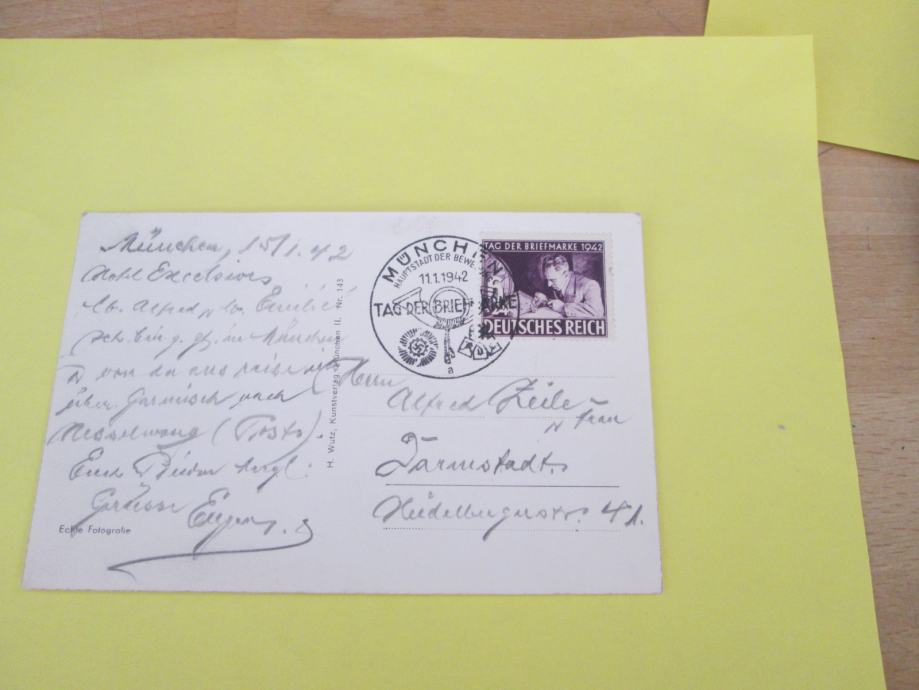 München, 15/1.42
Hotel Excelsior
lb. Alfred u. lb. Emilie
Sch. bin g. gt. in München
u von da aus reise ich
über Garmisch nach
Nesselwang (Posts)
Euch Beiden herzl.
Grüsse Eugen
Echte Fotografie
H. Wutz, Kunstverlag, München II, Nr. 143
MÜNCHEN
HAUPTSTADT DER BEWE
11.1.1942
TAG DER BRIEFMARKE
a
TAG DER BRIEFMARKE 1942
DEUTSCHES REICH
Herrn
Alfred Zeile
u Frau
Darmstadt
Heidelbergerstr. 41.